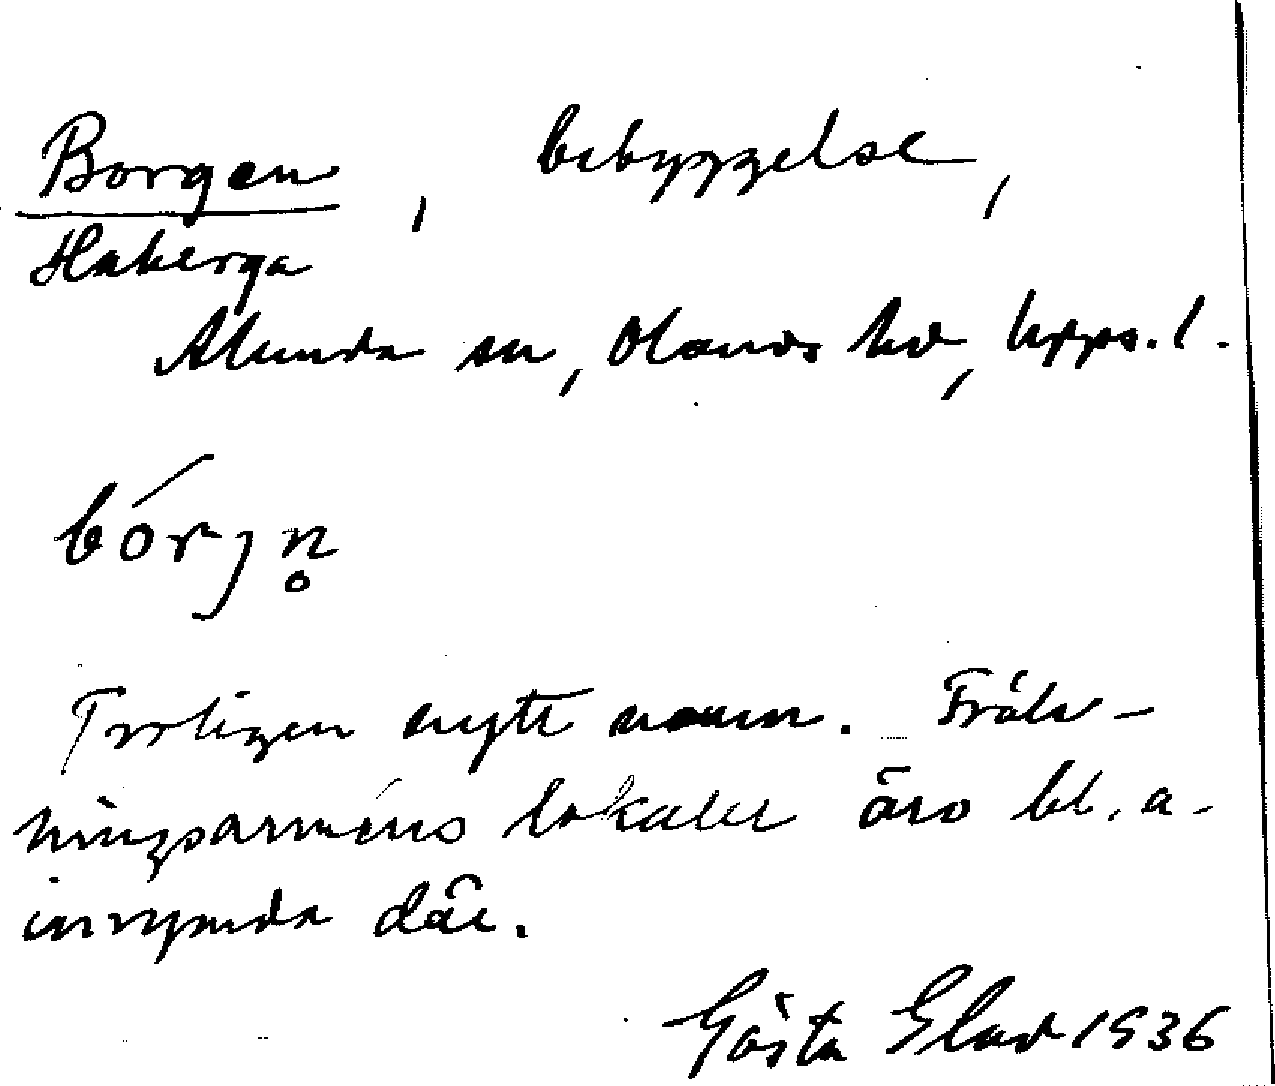 Borgen, bebyggelse,
Haberga
Alunda sn, Olands hd, Upps. l.
bórjn̥
Troligen nytt namn. Fräls-
ningsarméns lokaler äro bl. a.
inrymda där.
Gösta Elad 1936